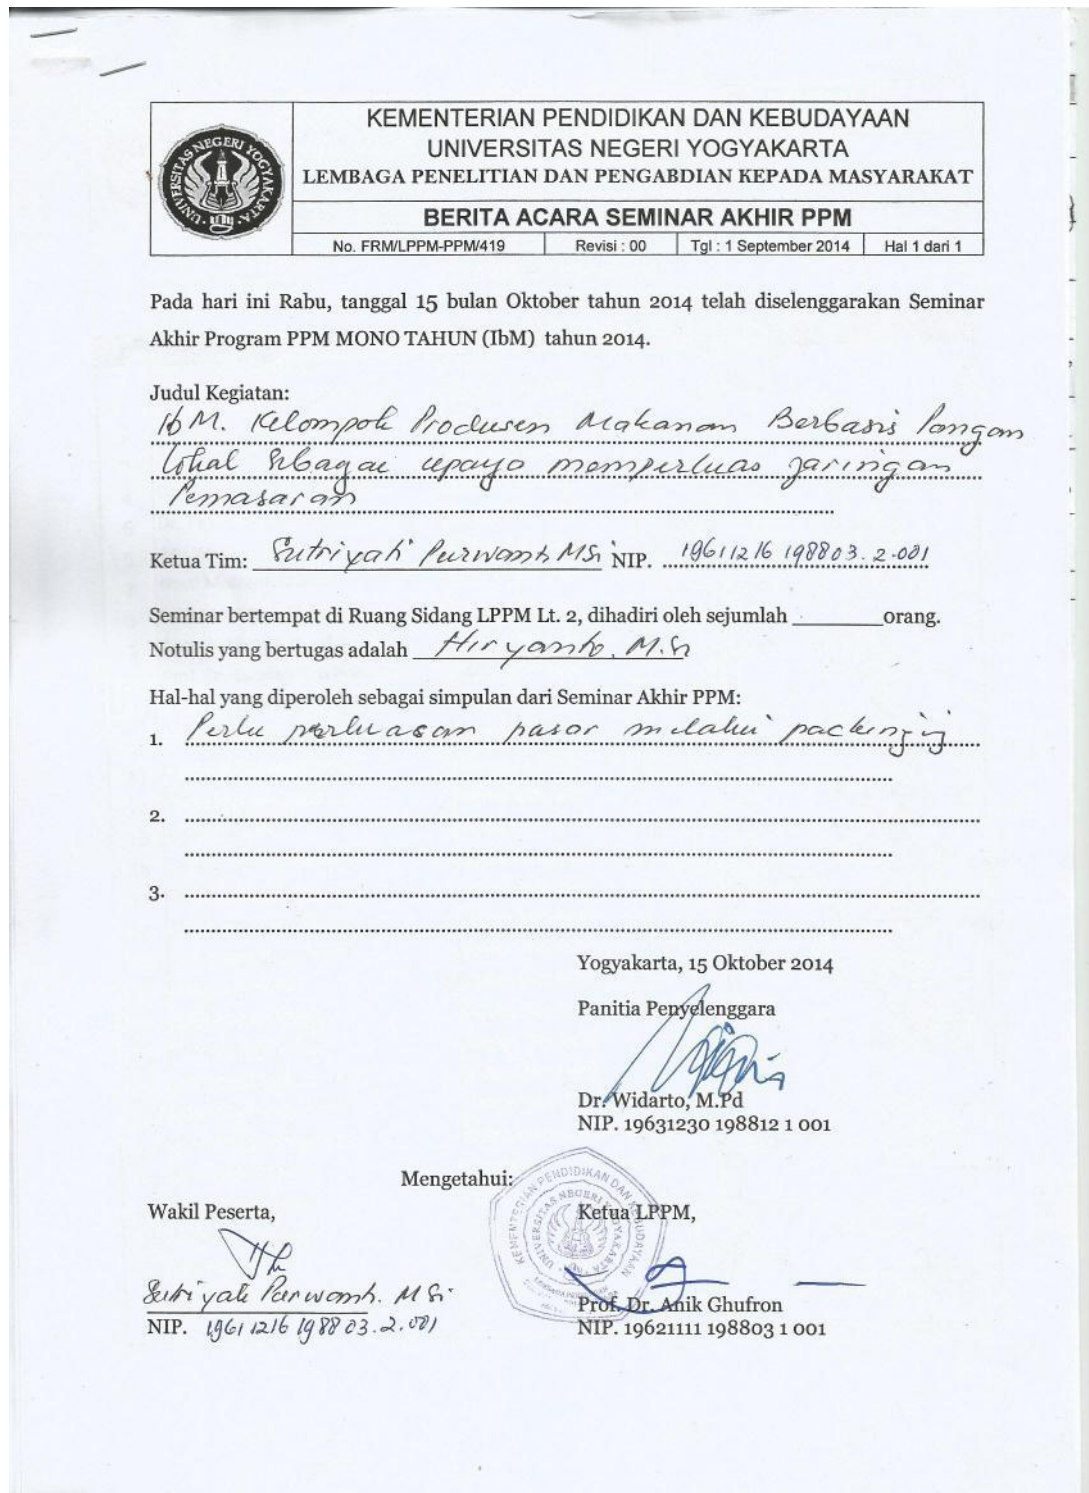 KEMENTERIAN PENDIDIKAN DAN KEBUDAYAAN
UNIVERSITAS NEGERI YOGYAKARTA
LEMBAGA PENELITIAN DAN PENGABDIAN KEPADA MASYARAKAT
BERITA ACARA SEMINAR AKHIR PPM
No. FRM/LPPM-PPM/419 Revisi : 00 Tgl : 1 September 2014 Hal 1 dari 1
UNIVERSITAS NEGERI YOGYAKARTA
Pada hari ini Rabu, tanggal 15 bulan Oktober tahun 2014 telah diselenggarakan Seminar
Akhir Program PPM MONO TAHUN (IbM) tahun 2014.
Judul Kegiatan:
IbM. Kelompok Produsen Makanan Berbasis Pangan
Lokal sebagai upaya memperluas jaringan
Pemasaran
Ketua Tim: Sutriyati Purwanti MSi NIP. 19611216 198803.2.001
Seminar bertempat di Ruang Sidang LPPM Lt. 2, dihadiri oleh sejumlah ________orang.
Notulis yang bertugas adalah Hiryanto. M.Si
Hal-hal yang diperoleh sebagai simpulan dari Seminar Akhir PPM:
1. Perlu perluasan pasar melalui packenging
2.
3.
Yogyakarta, 15 Oktober 2014
Panitia Penyelenggara
Dr. Widarto, M.Pd
NIP. 19631230 198812 1 001
Mengetahui:
Wakil Peserta, Ketua LPPM,
KEMENTERIAN PENDIDIKAN DAN KEBUDAYAAN
UNIVERSITAS NEGERI YOGYAKARTA
Sutriyati Purwanti. MSi Prof. Dr. Anik Ghufron
NIP. 19611216 198803.2.001 NIP. 19621111 198803 1 001